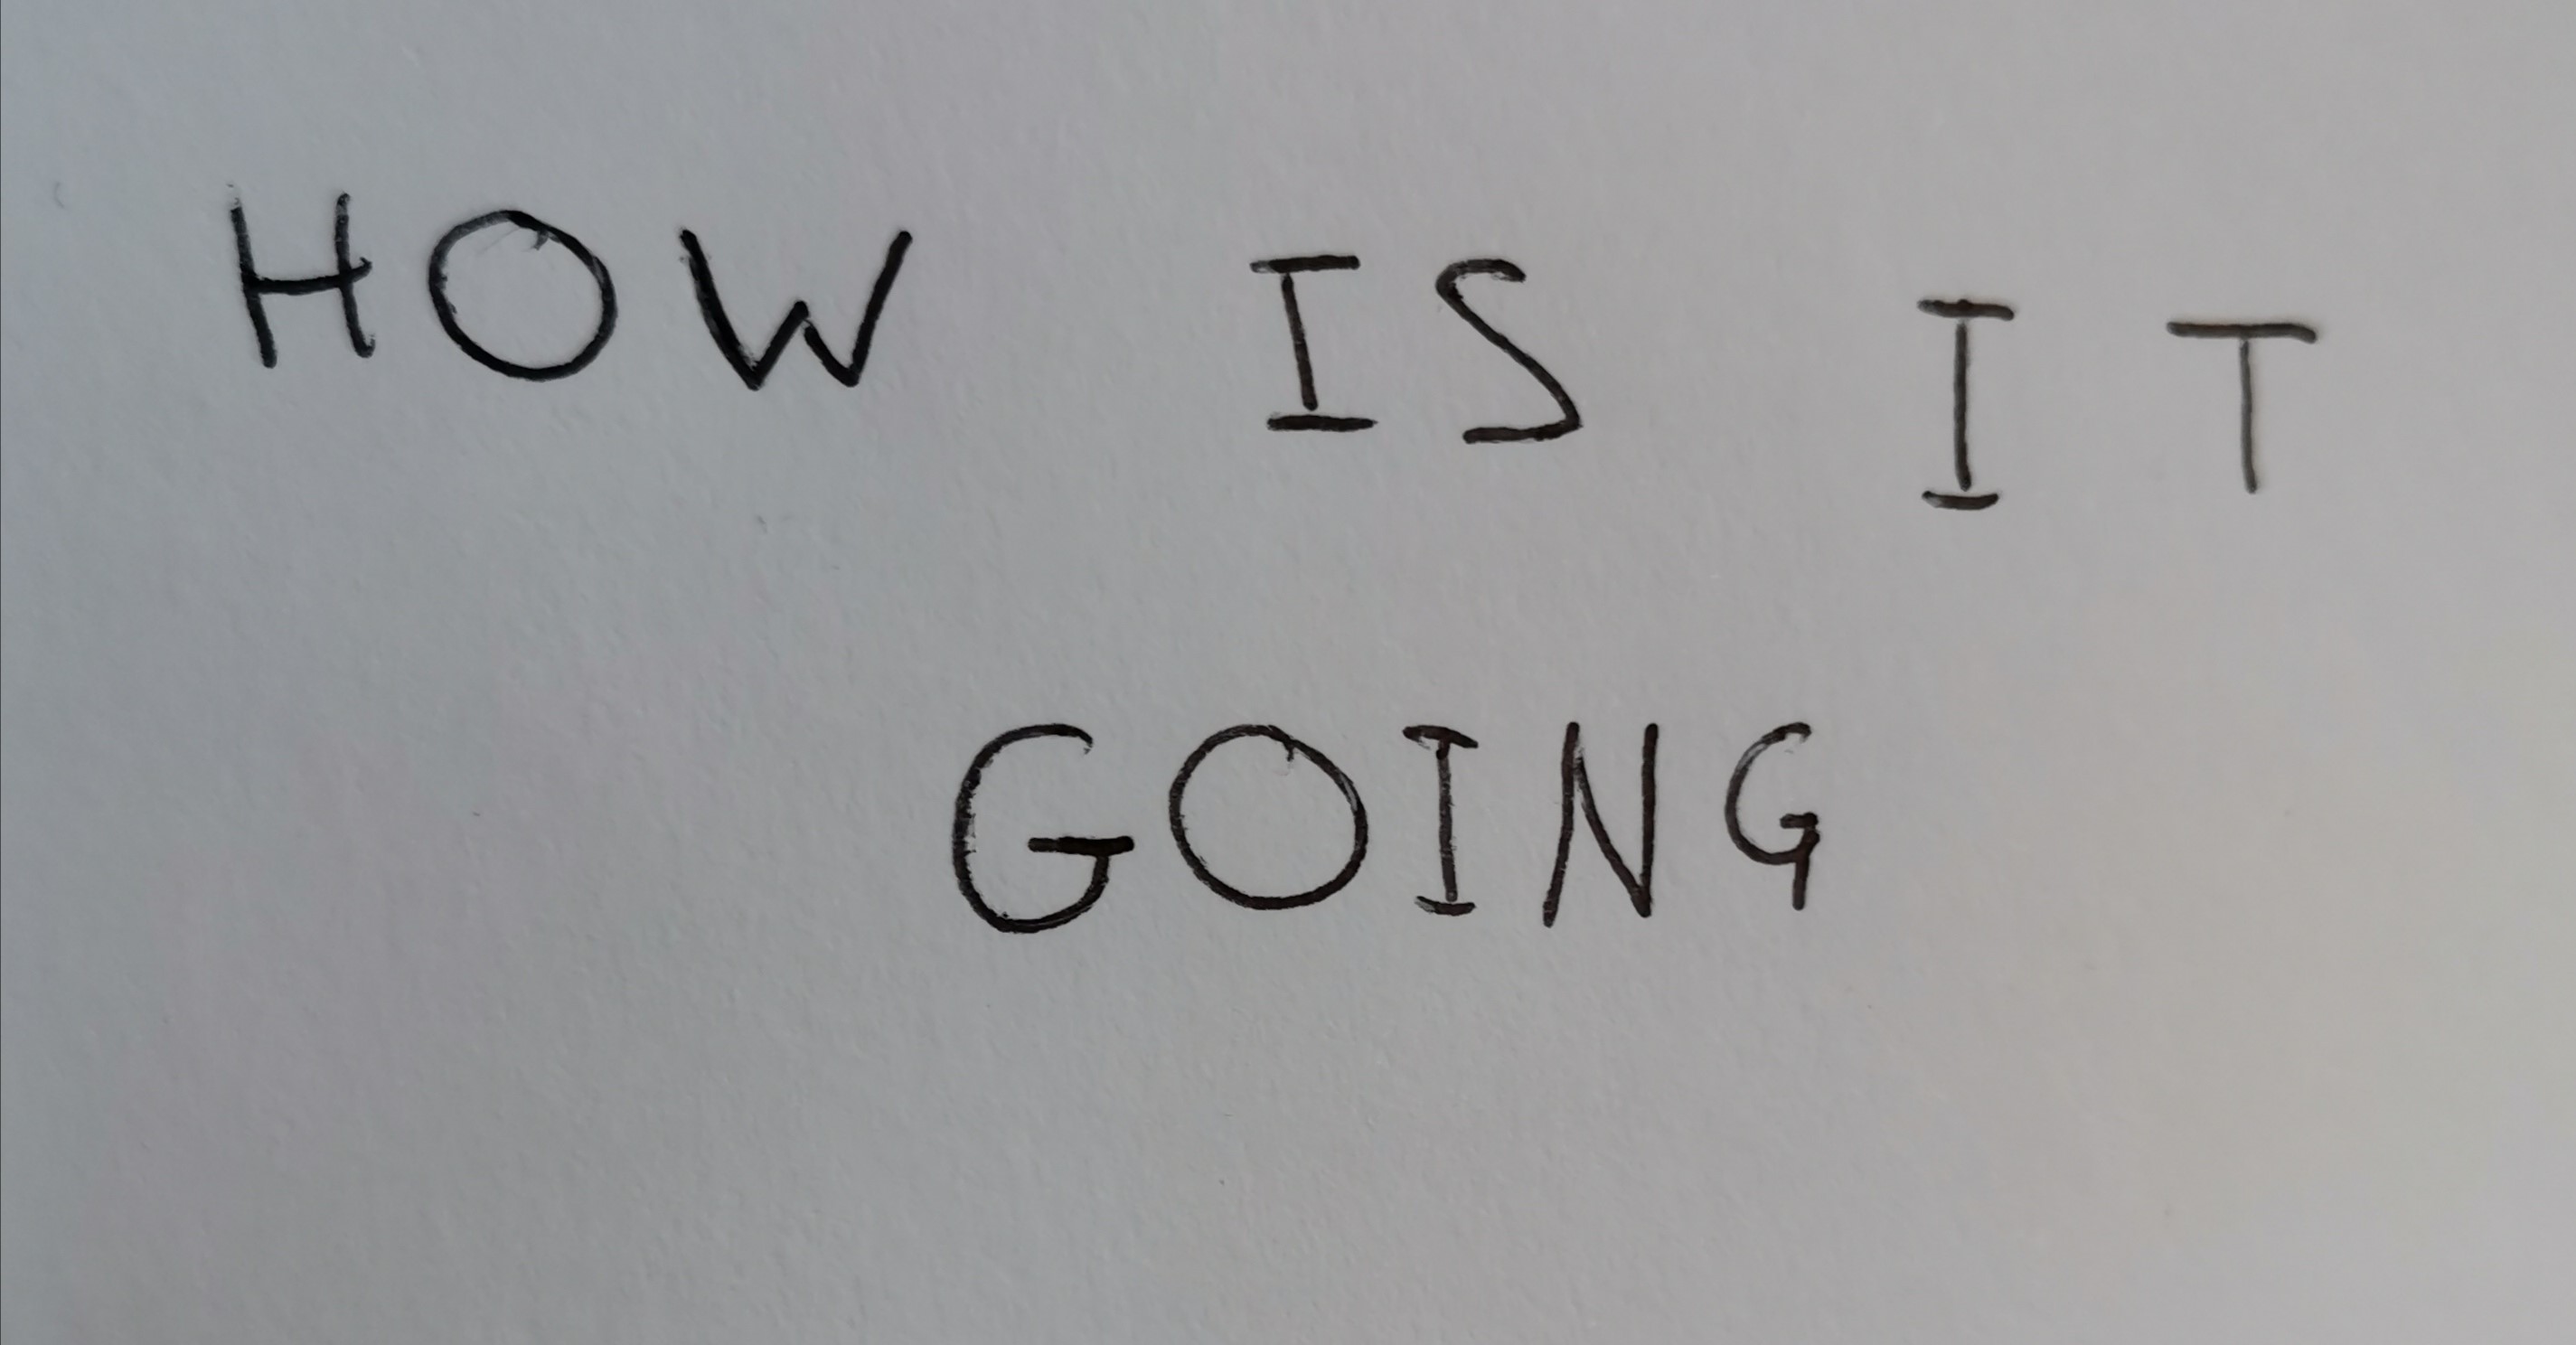 HOW IS IT
GOING